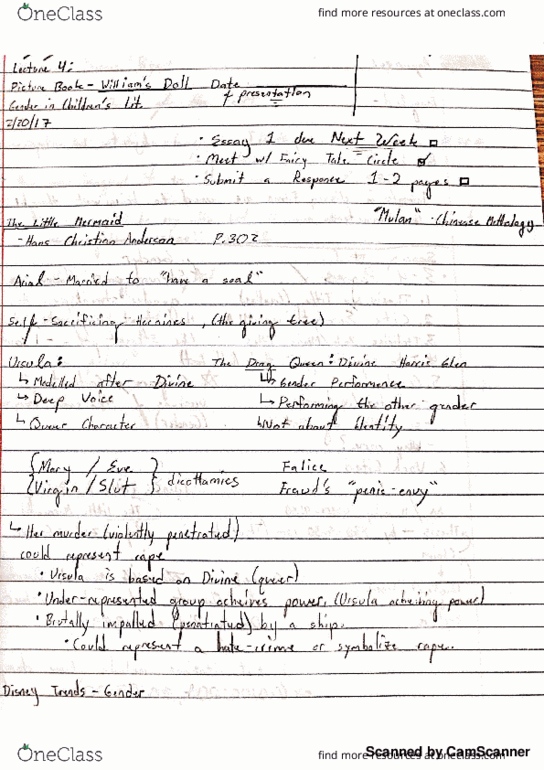 OneClass
find more resources at oneclass.com
Lecture 4:
Picture Book - William's Doll Date
of presentation
Gender in Children's Lit.
2/20/17
• Essay 1 due Next Week
• Meet w/ Fairy Tale Circle
• Submit a Response 1-2 pages
The Little Mermaid "Mulan" - Chinese Mythalogy
- Hans Christian Anderson P.302
Arial - Married to "have a soal"
Self-Sacrificing Heroines, (the giving tree)
Ursula: The Drag Queen: Divine Harris Glen
↳ Modelled after Divine ↳ Gender Performence
↳ Deep Voice ↳ Performing the other gender
↳ Queer Character ↳ Not about Identity
{Mary / Eve } Falice
{Virgin / Slut } dicottamies Fraud's "penis-envy"
↳ Her murder (violently penetrated)
could represent rape
• Ursula is based on Divine (queer)
• Under-represented group acheives power, (Ursula acheiving power)
• Brutally impalled (penatrated) by a ship.
• Could represent a hate-crime or symbolize rape.
Disney Trends - Gender
OneClass
find more resources at oneclass.com
Scanned by CamScanner